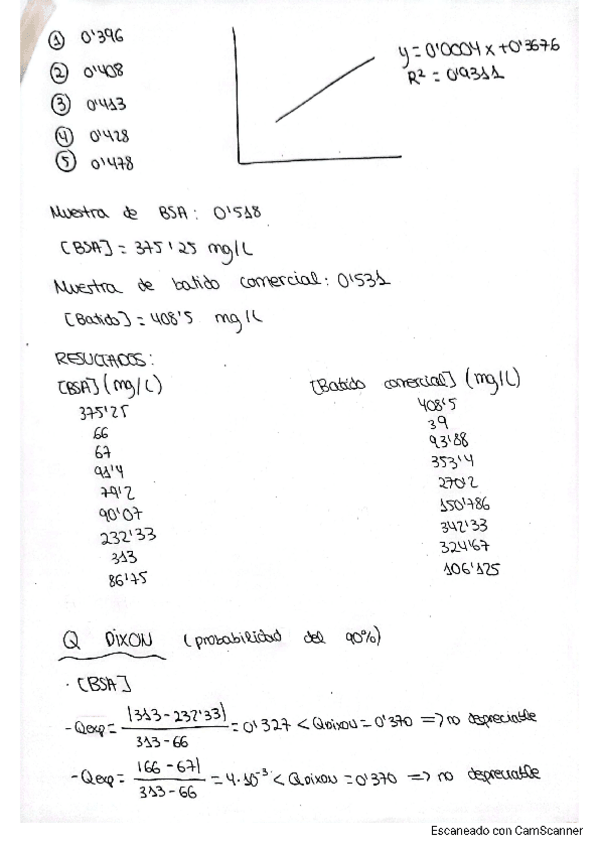 ① 0'396
② 0'408
③ 0'413
④ 0'428
⑤ 0'478
y = 0'0004x + 0'3676
R² = 0'9311
Muestra de BSA: 0'518
[BSA] = 375'25 mg/L
Muestra de batido comercial: 0'531
[Batido] = 408'5 mg/L
RESULTADOS:
[BSA] (mg/L)
375'25
66
67
91'4
79'2
90'07
232'33
313
86'75
[Batido comercial] (mg/L)
408'5
39
93'88
353'4
270'2
150'786
342'33
324'67
106'125
Q DIXON (probabilidad del 90%)
· [BSA]
- Qexp = |313 - 232'33| / 313 - 66 = 0'327 < QDixon = 0'370 => no depreciable
- Qexp = |66 - 67| / 313 - 66 = 4·10⁻³ < QDixon = 0'370 => no depreciable
Escaneado con CamScanner